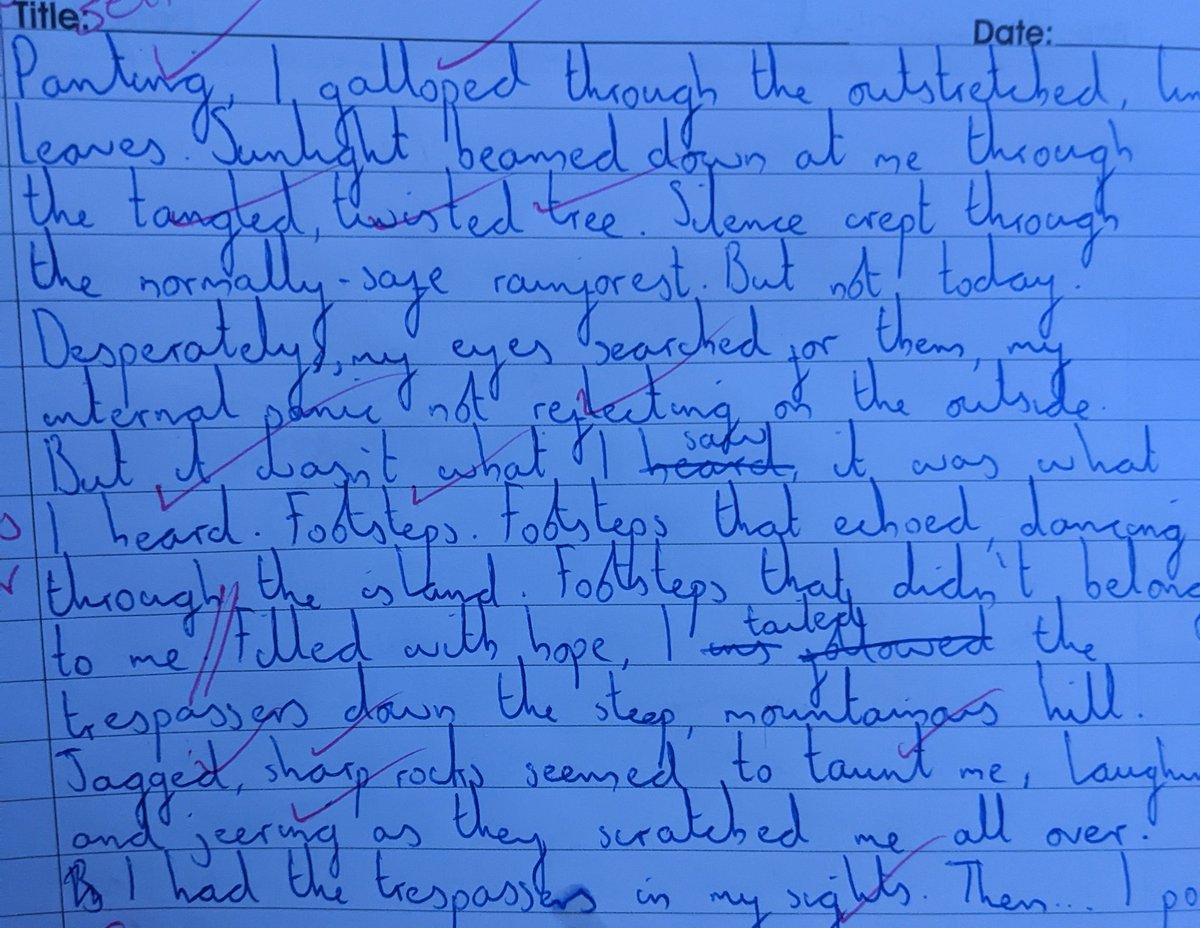 Title:
Date:
Panting, I galloped through the outstretched,
leaves. Sunlight beamed down at me through
the tangled, twisted tree. Silence crept through
the normally-safe rainforest. But not today.
Desperately, my eyes searched for them, my
internal panic not reflecting on the outside.
But it wasn't what I heard saw, it was what
I heard. Footsteps. Footsteps that echoed, dancing
through the island. Footsteps that didn't belong
to me // Filled with hope, I was followed tailed the
trespassers down the steep, mountainous hill.
Jagged, sharp rocks seemed to taunt me,
and jeering as they scratched me all over.
I had the trespassers in my sights. Then... I